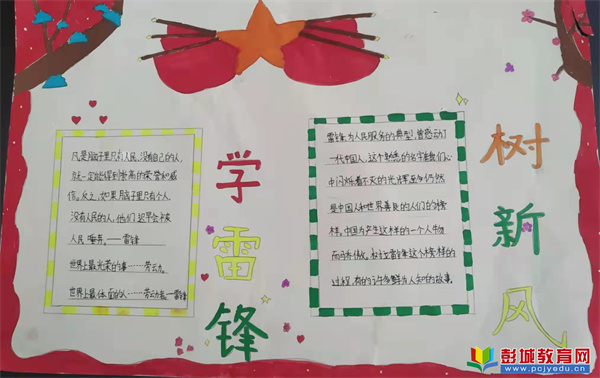 凡是脑子里只有人民,没有自己的人,
就一定能得到崇高的荣誉和威
信。反之,如果脑子里只有个人
没有人民的人,他们迟早会被
人民唾弃。——雷锋
世界上最光荣的事……劳动。
世界上最体面的人……劳动者。—雷锋
学雷锋
雷锋,为人民服务的典型,曾感动了
一代中国人,这个熟悉的名字在我们心
中闪烁着不灭的光辉至今仍然
是中国人和世界善良的人们的榜
样,中国为产生这样的一个人物
而
过程,有的许多鲜为人知的故事。
树新风
彭城教育网
www.pcjyedu.cn